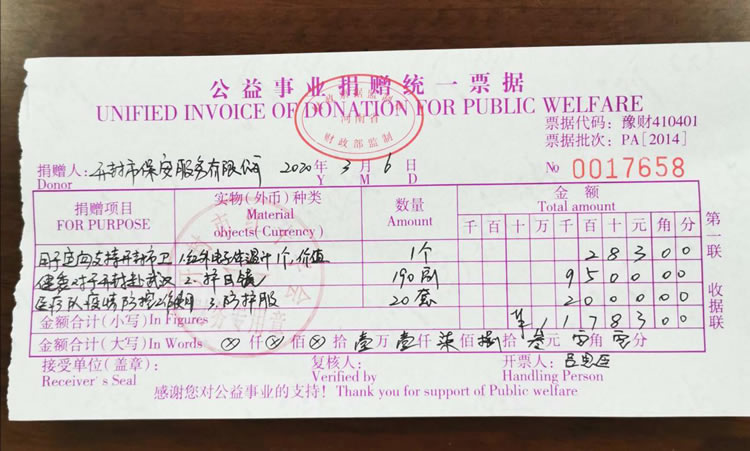 公益事业捐赠统一票据
UNIFIED INVOICE OF DONATION FOR PUBLIC WELFARE
河南省
财政部监制
票据代码：豫财410401
票据批次：PA[2014]
捐赠人：开封市保安服务有限公司 2020年3月6日 № 0017658
Donor Y M D
捐赠项目 实物（外币）种类 数量 金额
FOR PURPOSE Material objects(Currency) Amount Total amount
千百十万千百十元角分
用于定向支持开封市卫 1.红外电子体温计1个,价值 1个 28300
健委对于开封赴武汉 2.护目镜 190副 950000
医疗队疫情防控工作使用 3.防护服 20套 200000
金额合计（小写）In Figures ¥1178300
金额合计（大写）In Words ⊗仟⊗佰⊗拾壹万壹仟柒佰捌拾叁元零角零分
第一联
收据联
接受单位（盖章）： 复核人： 开票人：
Receiver's Seal Verified by Handling Person
感谢您对公益事业的支持！Thank you for support of Public welfare